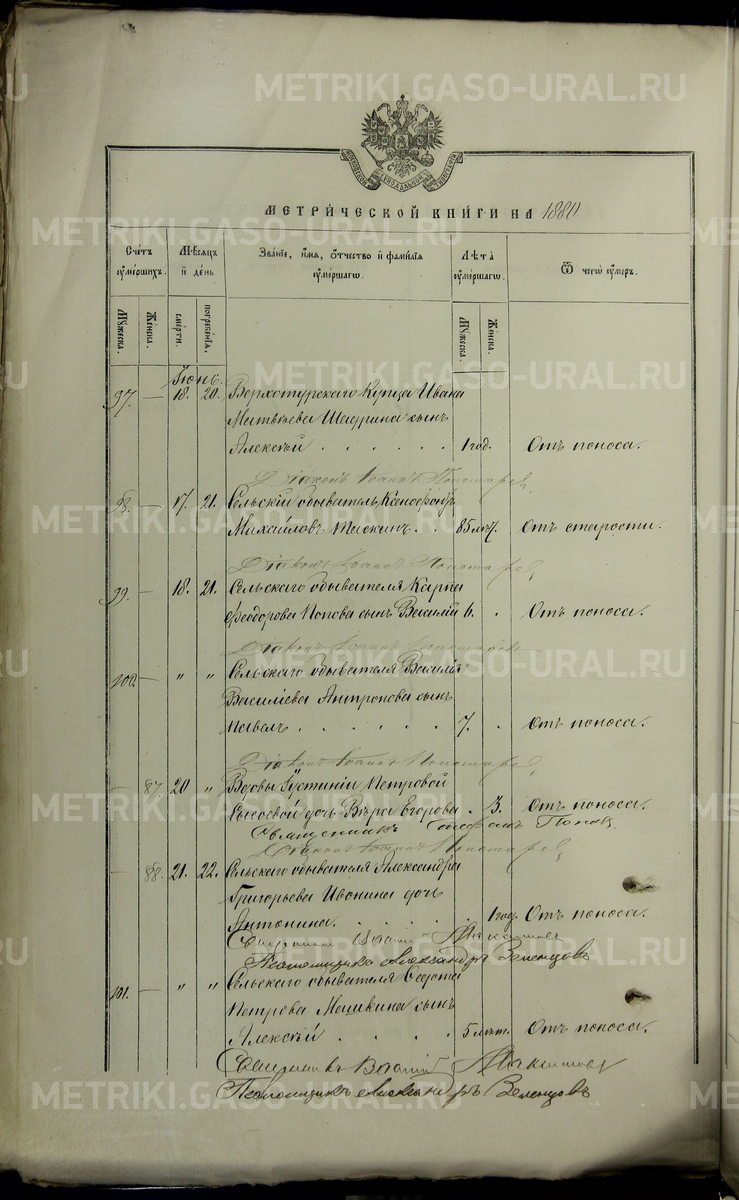 METRIKI.GASO-URAL.RU
МЕТРИ́ЧЕСКОЙ КНИ́ГИ НА 1880
Счетъ ѹмершихъ.
Мѣсяцъ и день
Званіе, имя, отчество и фамилія ѹмершагѡ.
Лѣта ѹмершагѡ.
Ѿ чегѡ ѹмеръ.
Мѹжеска.
Женска.
смерти.
погребенія.
Мѹжеска.
Женска.
Іюнь.
97. — 18. 20. Верхотурскаго Купца Ивана
Матвѣева Шадрина сынъ
Алексѣй . . . . . . 1 год. Отъ поноса.
Діаконъ Іоаннъ Пономарев
98. — 17. 21. Сельскій обыватель Ксенофонтъ
Михайловъ . . 85 лѣт. Отъ старости.
Діаконъ Іоаннъ Пономарев
99. — 18. 21. Сельскаго обывателя Карпа
Феодорова Попова сынъ Василій 6. . Отъ поноса.
Діаконъ Іоаннъ Пономарев
100. — " " Сельскаго обывателя Василія
Васильева Антропова сынъ
Павелъ . . . . . . 7. . Отъ поноса.
Діаконъ Іоаннъ Пономарев
— 87. 20 " Вдовы Устиніи Петровой
Сысоевой дочь Вѣра Егорова . 3. Отъ поноса.
Священникъ Стефанъ Попов
Діаконъ Іоаннъ Пономарев
— 88. 21. 22. Сельскаго обывателя Александра
Григорьева Ивонина дочь
Антонина. . . . . . 1 год. Отъ поноса.
Священникъ Максимовъ
Псаломщикъ Александръ Зеленцовъ
101. — " " Сельскаго обывателя Федота
Петрова Мешкина сынъ
Алексѣй . . . . . . 5 лѣт. Отъ поноса.
Священникъ Максимовъ
Псаломщикъ Александръ Зеленцовъ